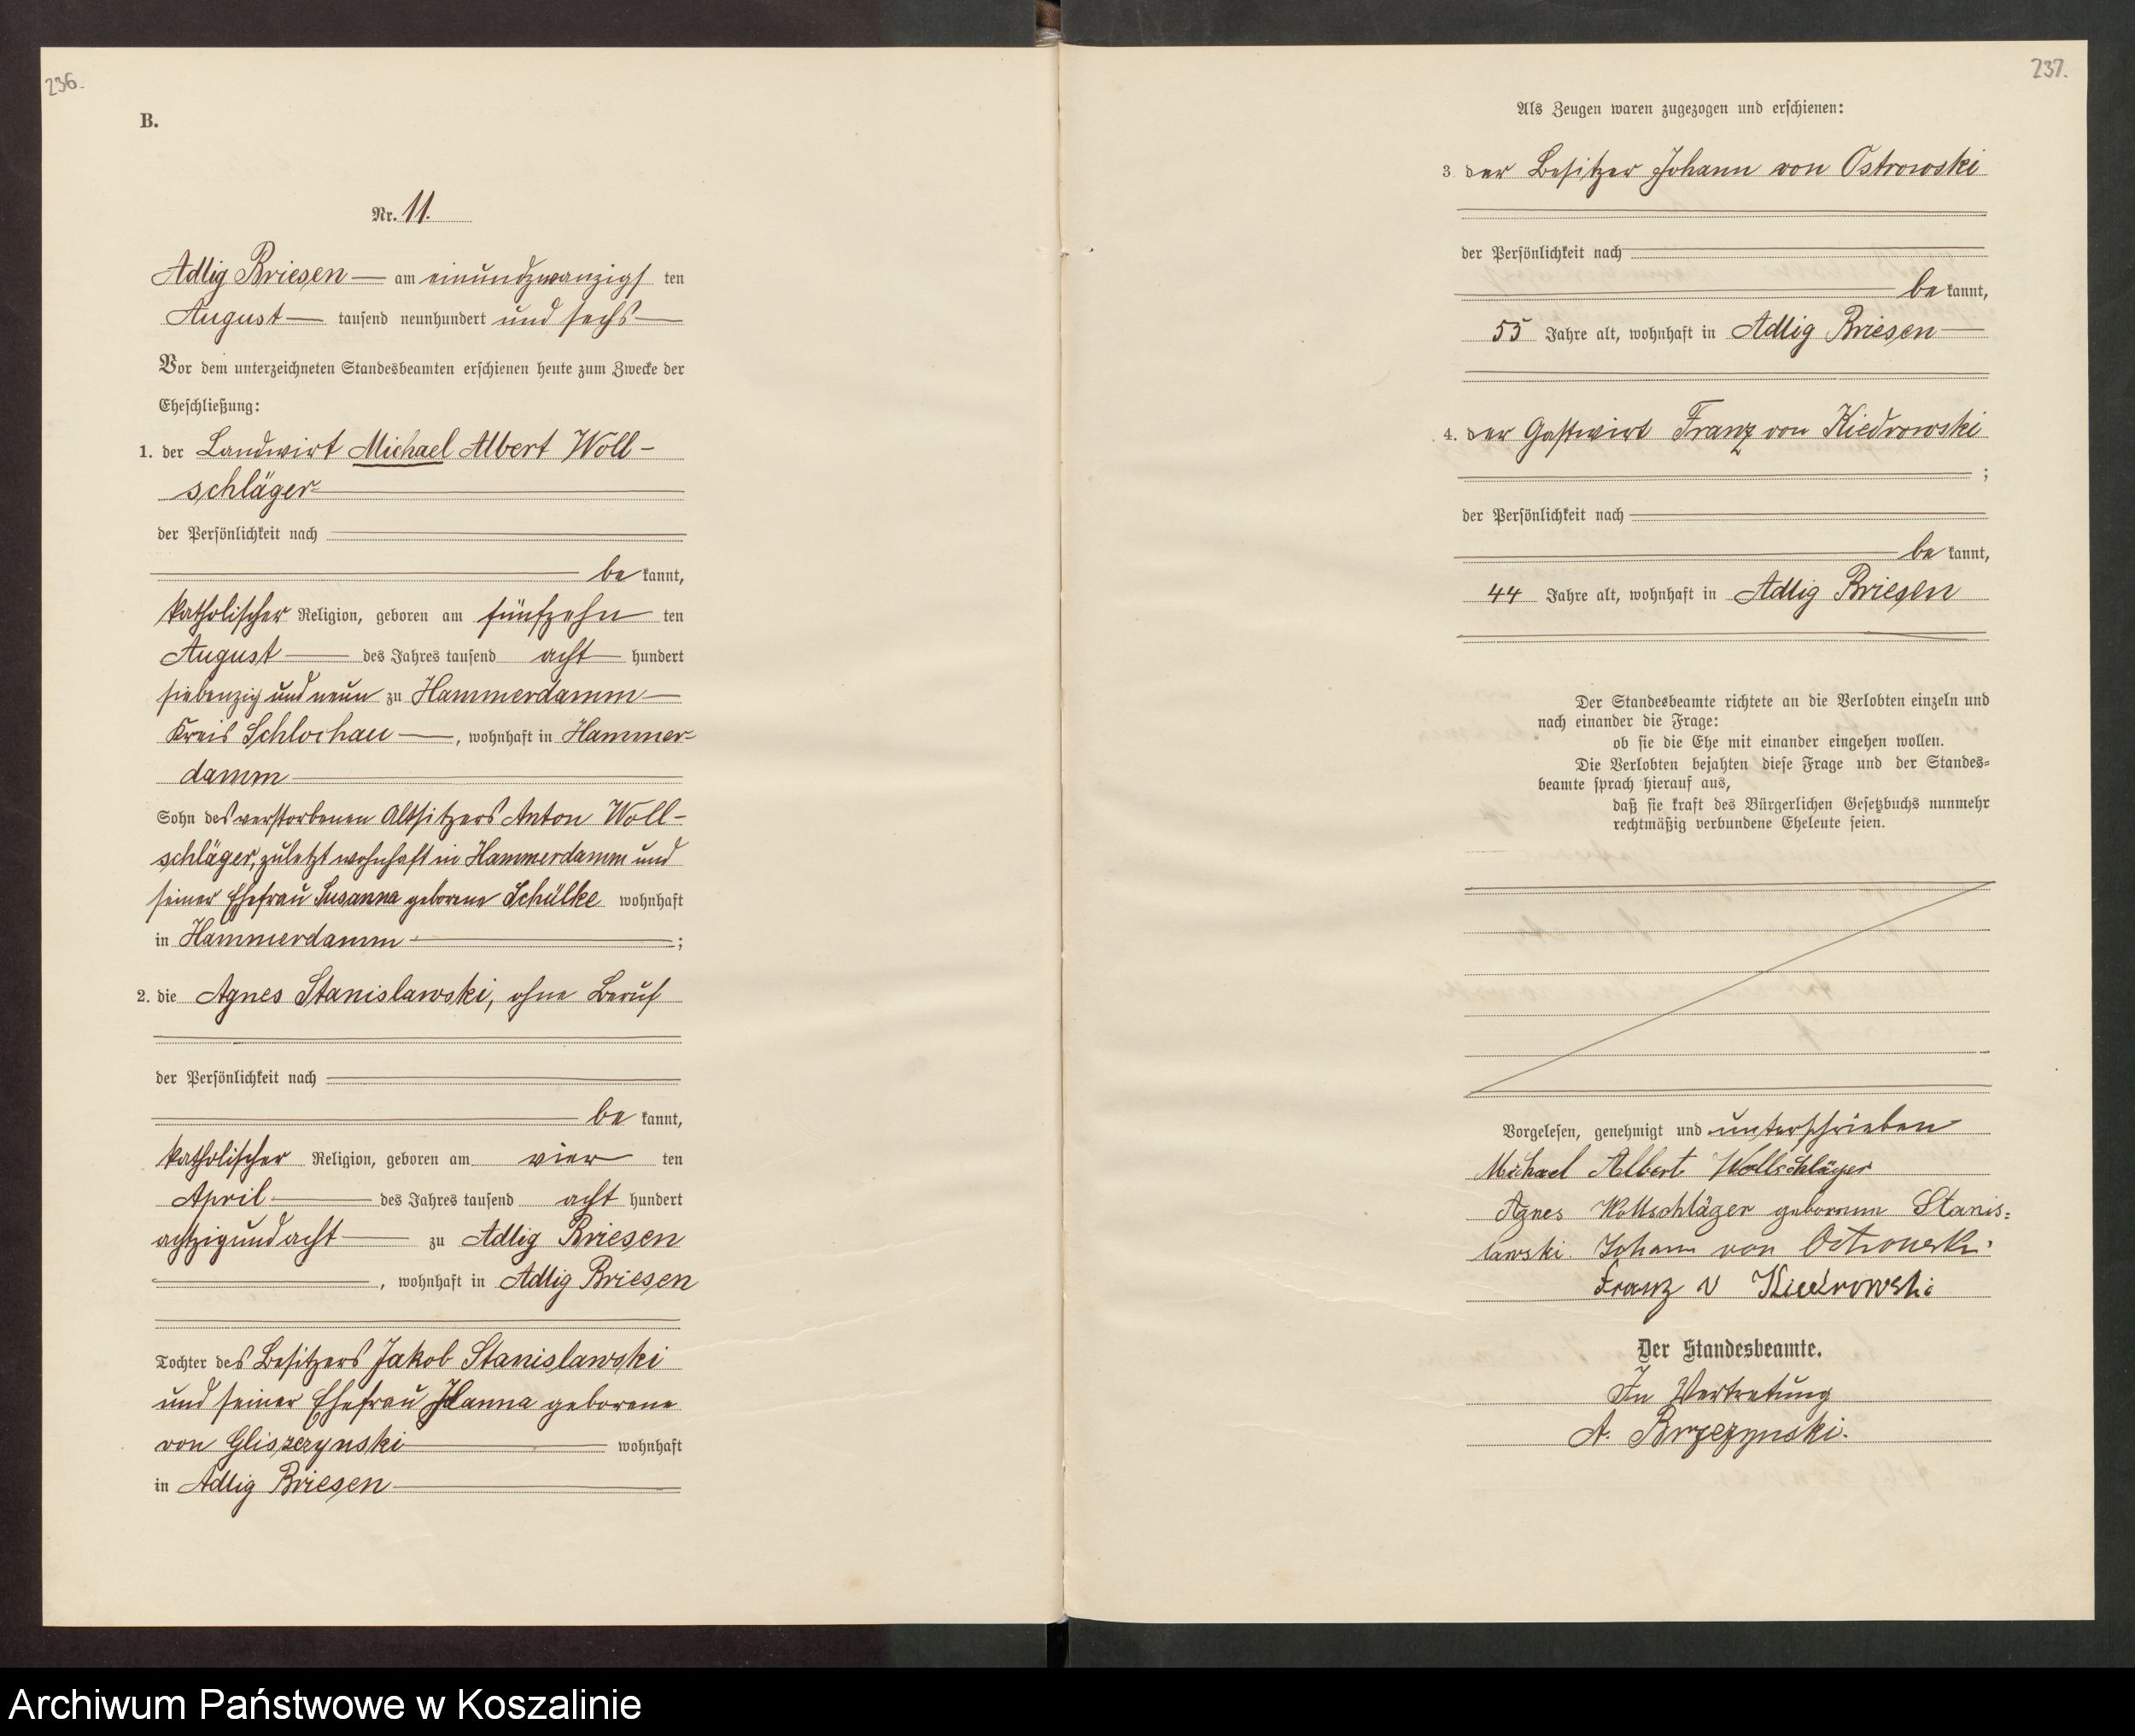 236.
B.
Nr. 11.
Adlig Briesen am einundzwanzigsten
August tausend neunhundert und sechs
Vor dem unterzeichneten Standesbeamten erschienen heute zum Zwecke der
Eheschließung:
1. der Landwirt Michael Albert Woll-
schläger
der Persönlichkeit nach
be kannt,
katholischer Religion, geboren am fünfzehn ten
August des Jahres tausend acht hundert
siebenzig und neun zu Hammerdamm
Kreis Schlochau, wohnhaft in Hammer-
damm
Sohn des verstorbenen Altsitzers Anton Woll-
schläger, zuletzt wohnhaft in Hammerdamm und
seiner Ehefrau Susanna geborene Schülke wohnhaft
in Hammerdamm ;
2. die Agnes Stanislawski, ohne Beruf
der Persönlichkeit nach
be kannt,
katholischer Religion, geboren am vier ten
April des Jahres tausend acht hundert
achtzig und acht zu Adlig Briesen
, wohnhaft in Adlig Briesen
Tochter des Besitzers Jakob Stanislawski
und seiner Ehefrau geborene
von Gliszczynski wohnhaft
in Adlig Briesen
237.
Als Zeugen waren zugezogen und erschienen:
3. der Besitzer Johann von Ostrowski
der Persönlichkeit nach
be kannt,
55 Jahre alt, wohnhaft in Adlig Briesen
4. der Gastwirt Franz von Kiedrowski
;
der Persönlichkeit nach
be kannt,
44 Jahre alt, wohnhaft in Adlig Briesen
Der Standesbeamte richtete an die Verlobten einzeln und
nach einander die Frage:
ob sie die Ehe mit einander eingehen wollen.
Die Verlobten bejahten diese Frage und der Standes-
beamte sprach hierauf aus,
daß sie kraft des Bürgerlichen Gesetzbuchs nunmehr
rechtmäßig verbundene Eheleute seien.
Vorgelesen, genehmigt und unterschrieben
Michael Albert Wollschläger
Agnes Wollschläger geborene Stanis-
lawski. Johann von Ostrowski.
Franz v Kiedrowski
Der Standesbeamte.
In Vertretung
A. Brzezynski.
Archiwum Państwowe w Koszalinie